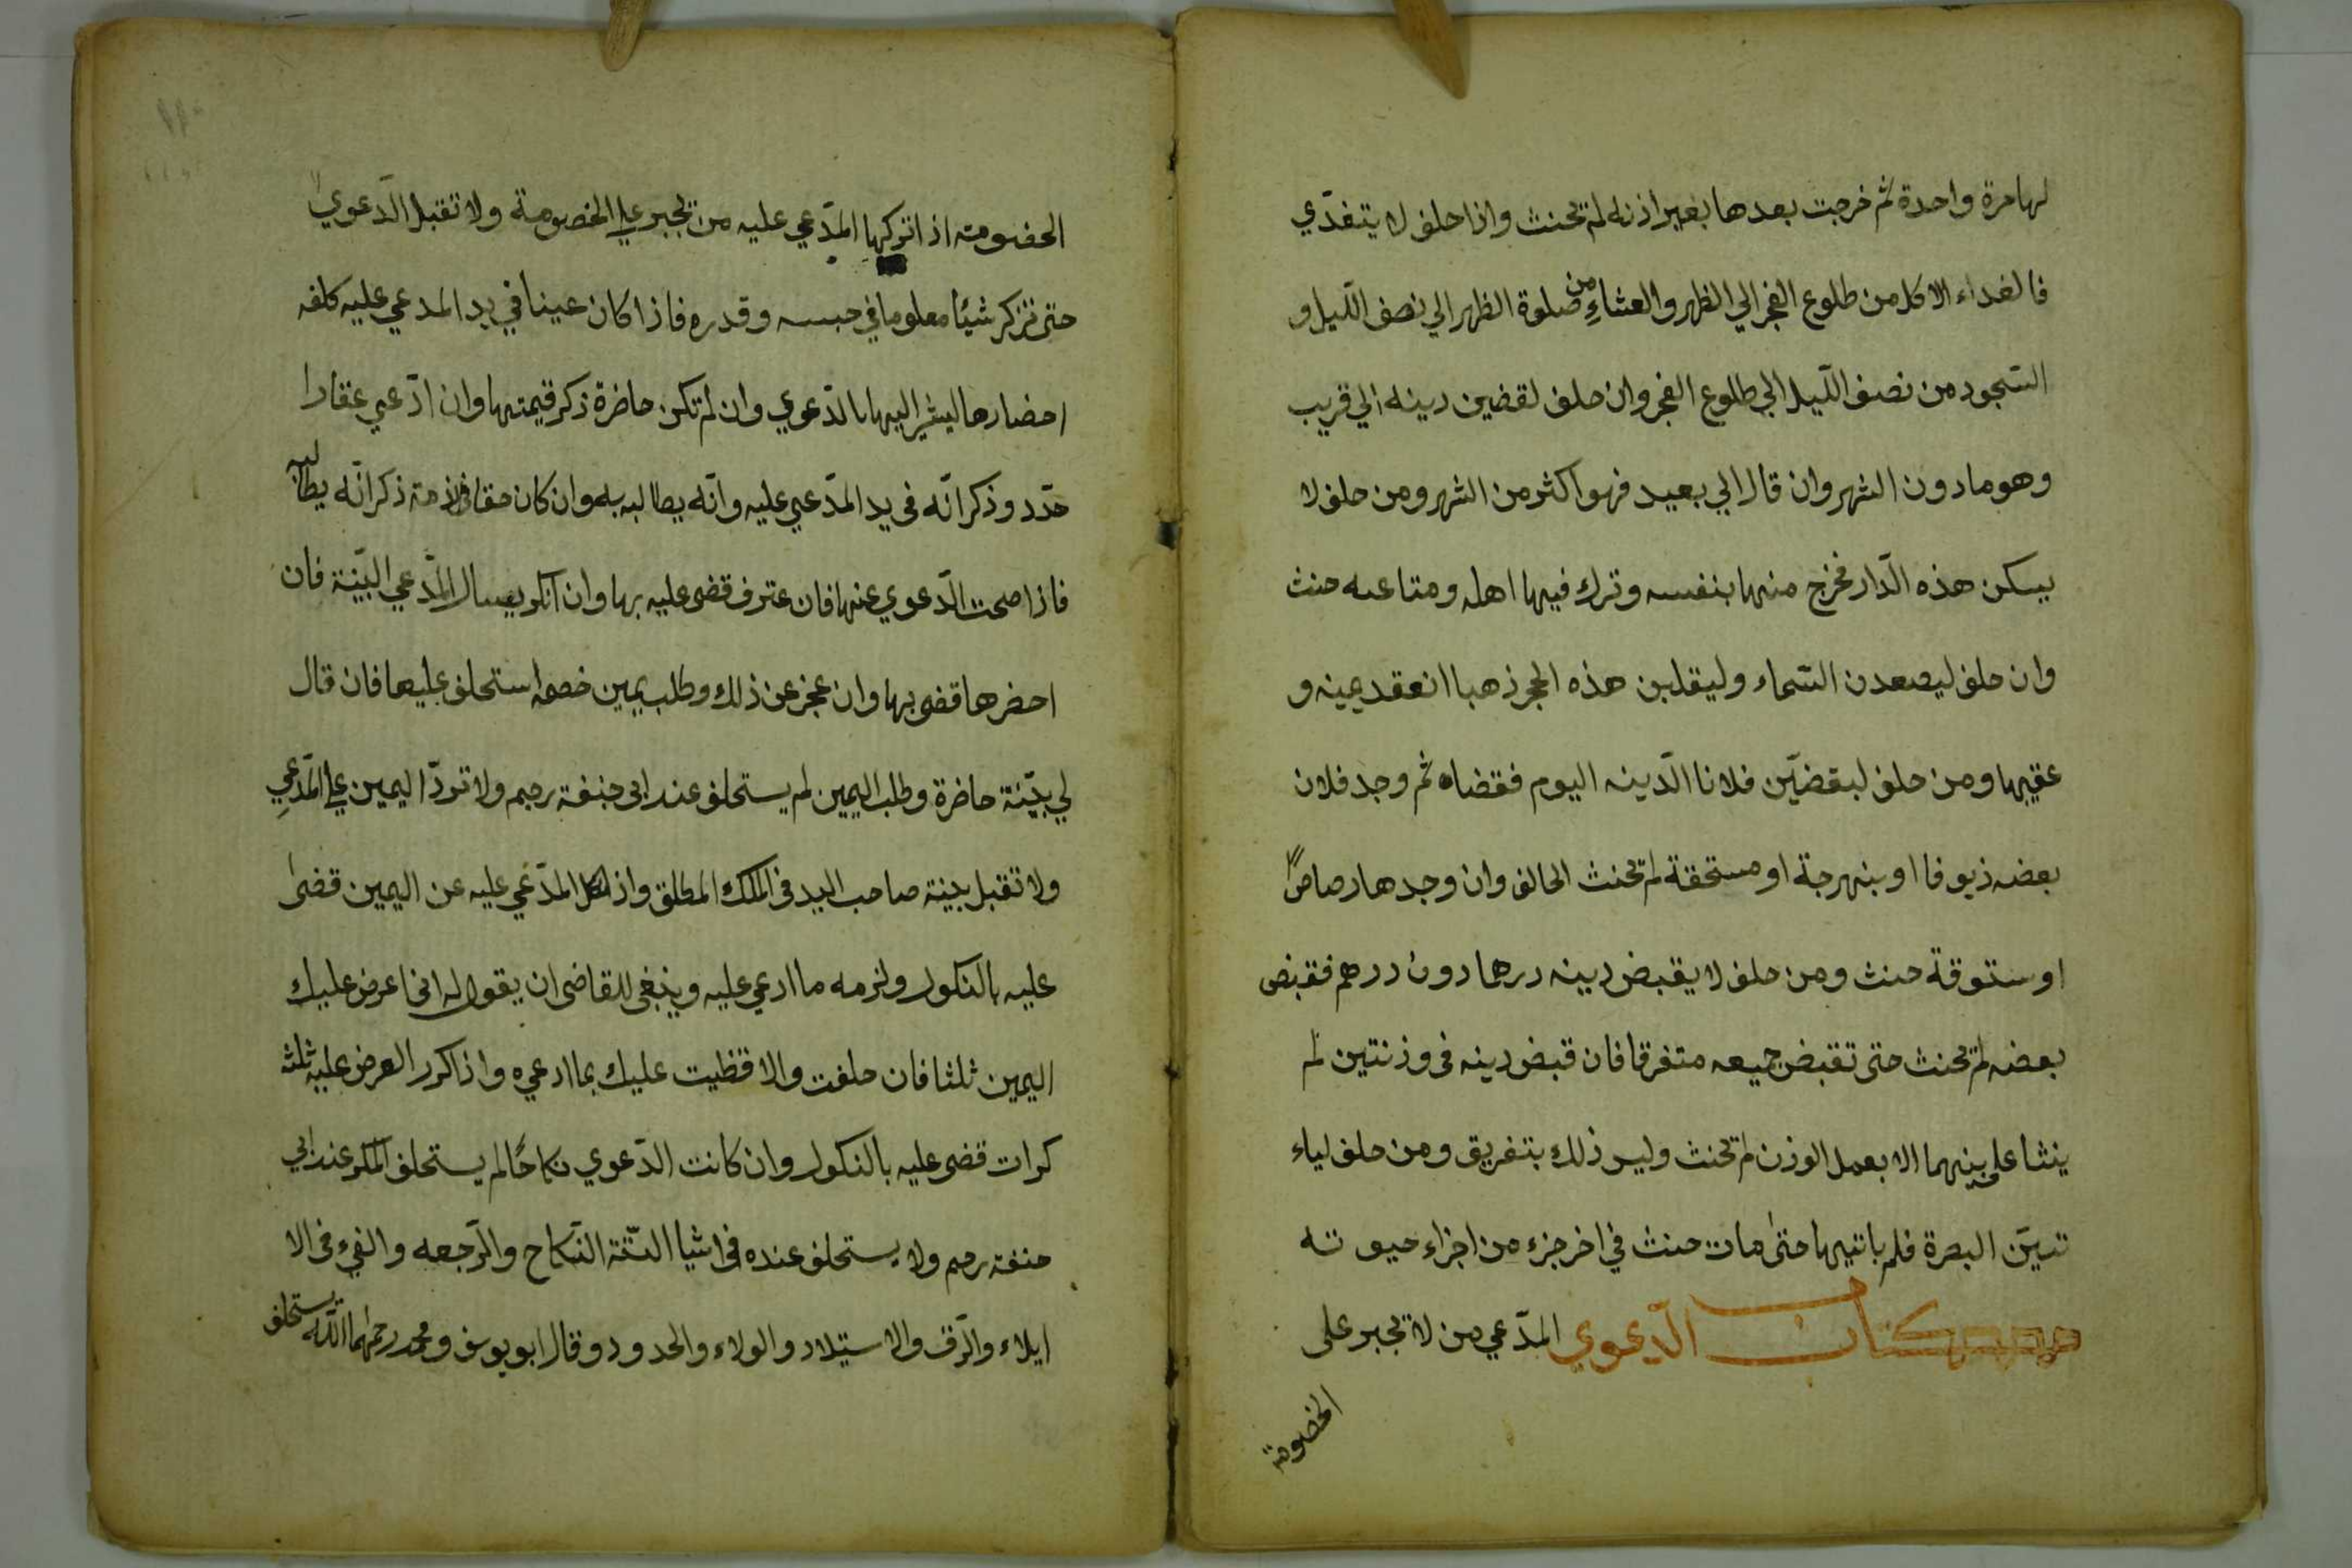 لها مرة واحدة ثم خرجت بعدها بغير اذنه لم تحنث واذا حلف لا يتغدّي
فالغداء الاكل من طلوع الفجر الي الظهر والعشاءِ من صلوة الظهر الي نصف الّليل و
السّجود من نصف الّليل الي طلوع الفجر وان حلف لقضين دينه الي قريب
وهو مادون الشهر وان قال الي بعيد فهو اكثر من الشهر ومن حلف لا
يسكن هذه الّدار فخرج منها بنفسه وترك فيها اهله ومتاعه حنث
وان حلف ليصعدن السّماء وليقلبن هذه الحجر ذهبا انعقد يمينه و
عقيبها ومن حلف لبقضيّن فلانا الّدينه اليوم فقضاه ثم وجد فلان
بعضه زيوفا او بنهرجة او مستحقة لم تحنث الحالف وان وجدها رصاصًا
او ستوقة حنث ومن حلف لا يقبض دينه درهما دون درهم فقبض
بعضه لم تحنث حتى تقبض جميعه متفرقا فان قبض دينه فى وزنتين لم
ينشاعلى بينهما الا بعمل الوزن لم تحنث وليس ذلك بتفريق ومن حلف لياء
تديّن البصرة فلم ياتيها حتىٰ مات حنث في اخر جزء من اجزاء حيوته
كتاب الدعوي المدّعي من لا تجبر على
الخصومة
الخضومته اذ اتركها المدّعي عليه من تجبر علي الخصومة ولا تقبل الّدعوي
حتى تزكر شيئا معلوما في حبسه وقدره فاذا كان عينا في يد المدعي عليه كلفه
احضارها ليشير اليها بالدّعوي وان لم تكن حاضرة ذكر قيمتها وان ادّعي عقارا
حدّد وذكر انّه فى يد المدّعي عليه وانّه يطالبه به وان كان حقا في الذمته ذكر انّه يطالبه
فاذا صحت الدّعوي عنها فان عترف قضى عليه بها وان انكر يسال المدّعي البيّنة فان
احضرها قضى بها وان عجز عن ذلك وطلب يمين خصمه استحلف عليها فان قال
لي بيّنة حاضرة وطلب اليمين لم يستحلف عند ابى حنفة رحم ولا تردّ اليمين علي المدّعيِ
ولا تقبل بينة صاحب اليد فى الملك المطلق واذا نكل المدّعي عليه عن اليمين قضىٰ
عليه بالنكول ولزمه ما ادعي عليه وينبغى للقاضى ان يقول له انى اعرض عليك
اليمين ثلثا فان حلفت والا قظيت عليك بما ادعيه واذا كرر العرض عليه ثلث
كرات قضى عليه بالنكول وان كانت الدّعوي نكاحًا لم يستحلف المنكر عند ابي
حنفة رحم ولا يستحلف عنده فى اشيا الستّة النّكاح والرّجعه والفيء فى الا
ايلاء والرّق والاستيلاد والولاء والحدود وقال ابو يوسف ومحمد رحمهما اللّه يستحلف